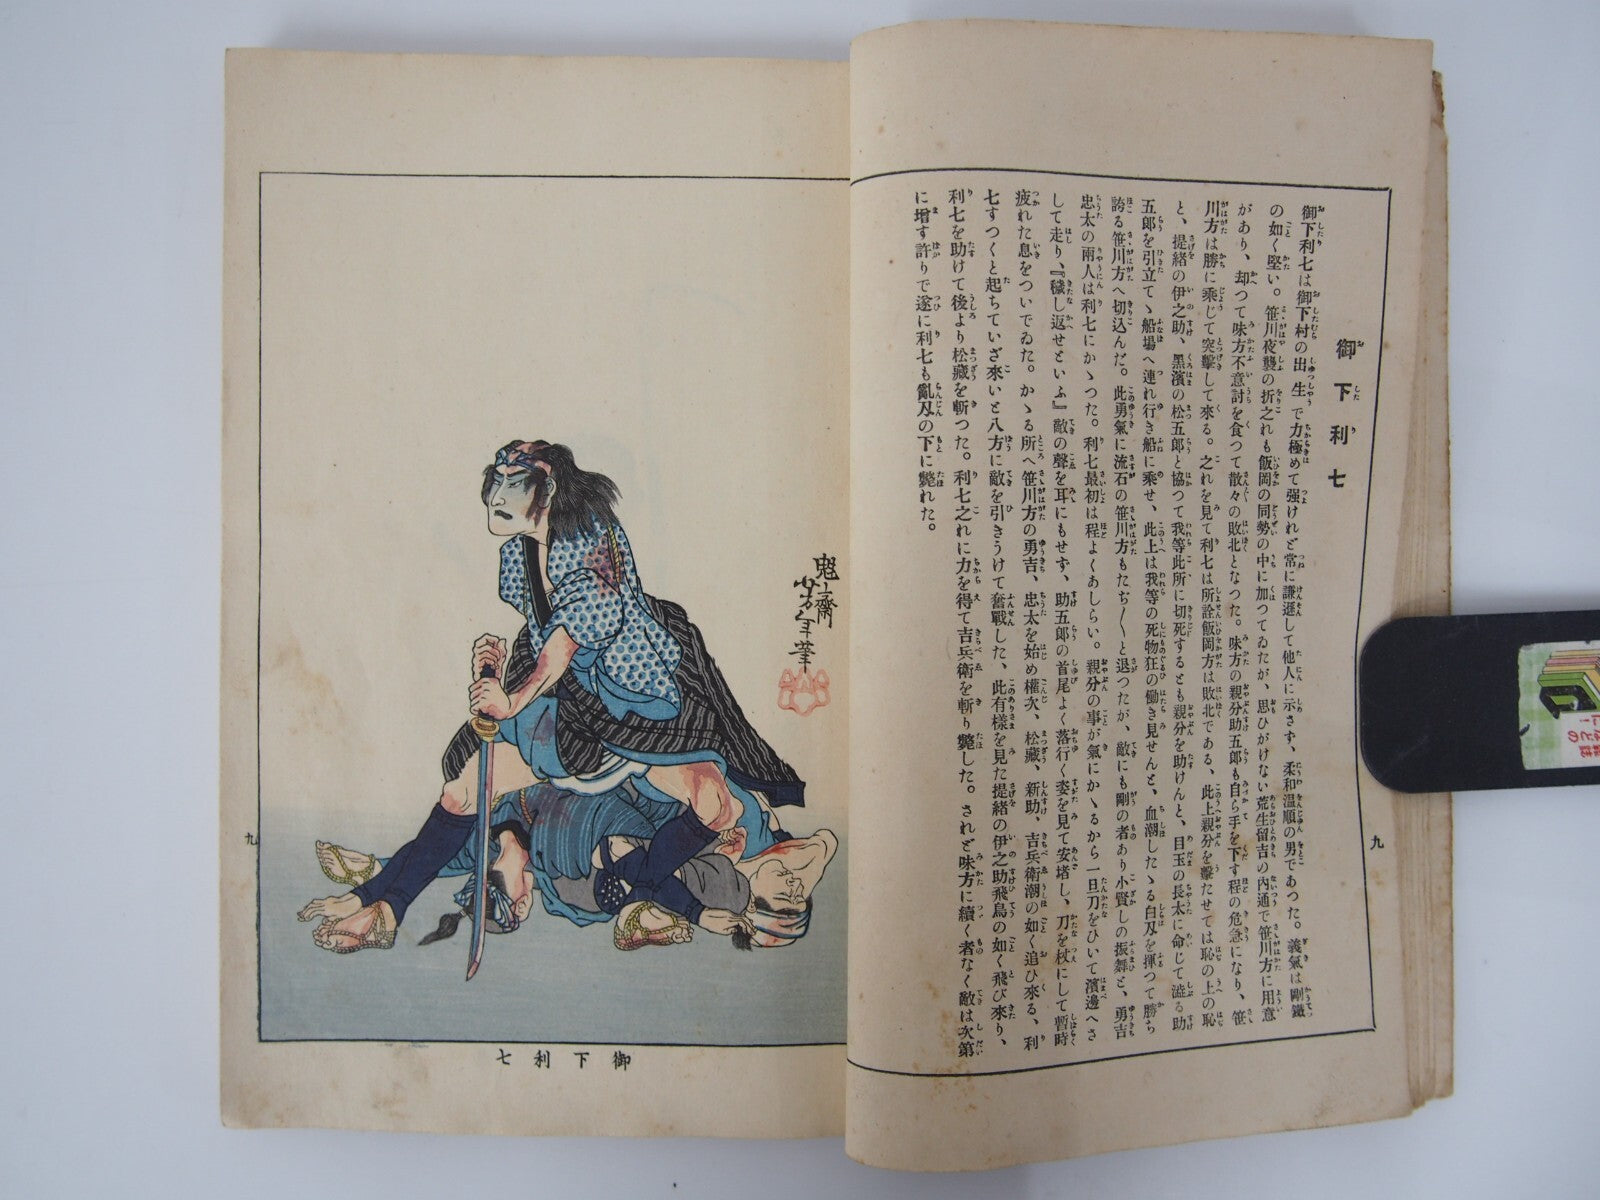 御下利七
御下利七は御下村の出生で力極めて强けれど常に謙遜して他人に示さず、柔和溫順の男であつた。義氣は剛鐵
の如く堅い。笹川夜襲の折之れも飯岡の同勢の中に加つてゐたが、思ひがけない荒生留吉の內通で笹川方に用意
があり、却つて味方不意討を食つて散々の敗北となつた。味方の親分助五郎も自ら手を下す程の危急になり、笹
川方は勝に乘じて突擊して來る。之れを見て利七は所詮飯岡方は敗北である、此上親分を擊たせては恥の上の恥
と、提緒の伊之助、黑濱の松五郎と協つて我等此所に切死するとも親分を助けんと、目玉の長太に命じて澁る助
五郎を引立てゝ船場へ連れ行き船に乘せ、此上は我等の死物狂の働き見せんと、血潮したゝる白刄を揮つて勝ち
誇る笹川方へ切込んだ。此勇氣に流石の笹川方もたぢ〱と退つたが、敵にも剛の者あり小賢しの振舞と、勇吉
忠太の兩人は利七にかゝつた。利七最初は程よくあしらい。親分の事が氣にかゝるから一旦刀をひいて濱邊へさ
して走り、『穢し返せといふ』敵の聲を耳にもせず、助五郎の首尾よく落行く姿を見て安堵し、刀を杖にして暫時
疲れた息をついでゐた。かゝる所へ笹川方の勇吉、忠太を始め權次、松藏、新助、吉兵衛潮の如く追ひ來る、利
七すつくと起ちていざ來いと八方に敵を引きうけて奮戰した、此有樣を見た提緒の伊之助飛鳥の如く飛び來り、
利七を助けて後より松藏を斬つた。利七之れに力を得て吉兵衛を斬り斃した。されど味方に續く者なく敵は次第
に增す許りで遂に利七も亂刄の下に斃れた。
九
魁斎芳年筆
九
御下利七